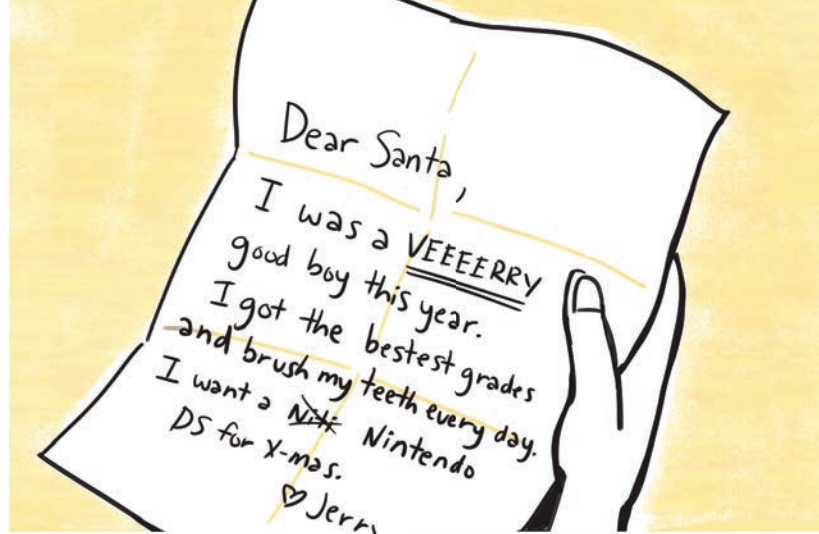 Dear Santa,
I was a VEEEERRY
good boy this year.
I got the bestest grades
and brush my teeth every day.
I want a Nintendo
DS for X-mas.
♡ Jerry